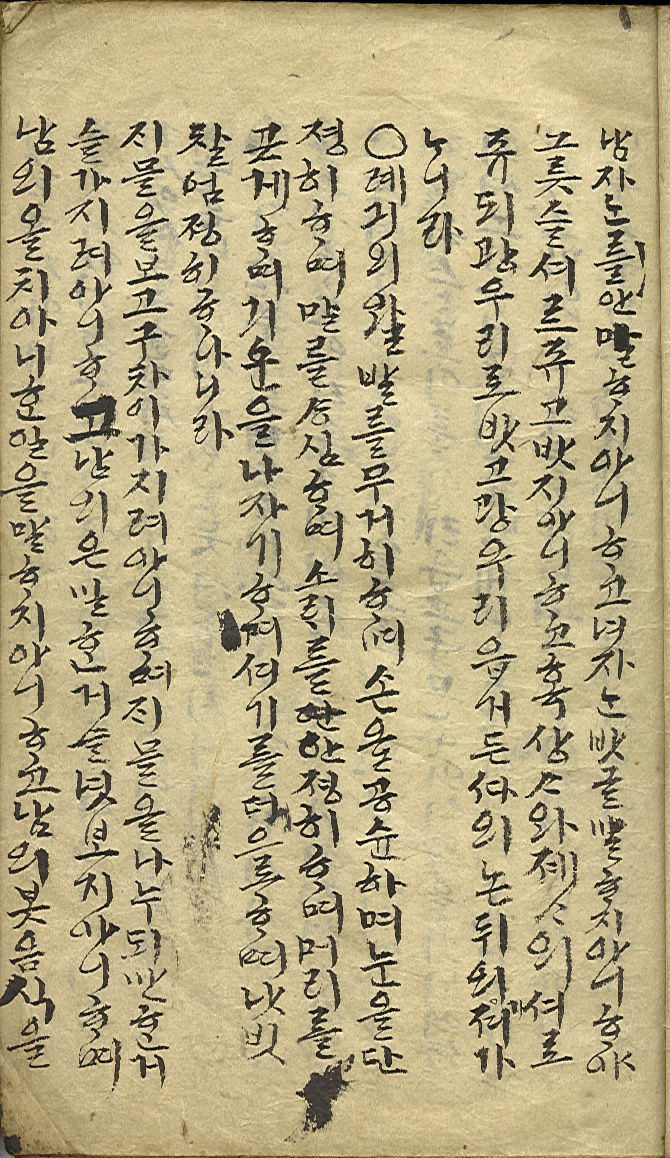 남자노를안말ᄒᆞ지아니ᄒᆞ고녀자는밧글말ᄒᆞ지아니ᄒᆞ야
그릇슬셔르쥬고밧지아니ᄒᆞ고혹상ᄉᆞ와졔ᄉᆞ의셔로
쥬되광우리로밧고광우리읍거든ᄯᅡ의논뒤의져가
ᄂᆞ니라
○례긔의왈발를무거히ᄒᆞ며손을공슌하며눈을단
졍히ᄒᆞ며말를ᄉᆞᆷ심ᄒᆞ며소릐를안졍히ᄒᆞ며머리를
곳게ᄒᆞ며긔운을나자기ᄒᆞ며셔기를더으르ᄒᆞ며낫빗
찰엄졍히ᄒᆞ나니라
ᄌᆡ물을보고구차이가지려아니ᄒᆞ며ᄌᆡ물을나누되만ᄒᆞᆫ거
슬가지려아니ᄒᆞ고남의은말ᄒᆞᆫ거슬넛보지아니ᄒᆞ며
남의올치아니ᄒᆞᆫ일을말ᄒᆞ지아니ᄒᆞ고남의못음식을